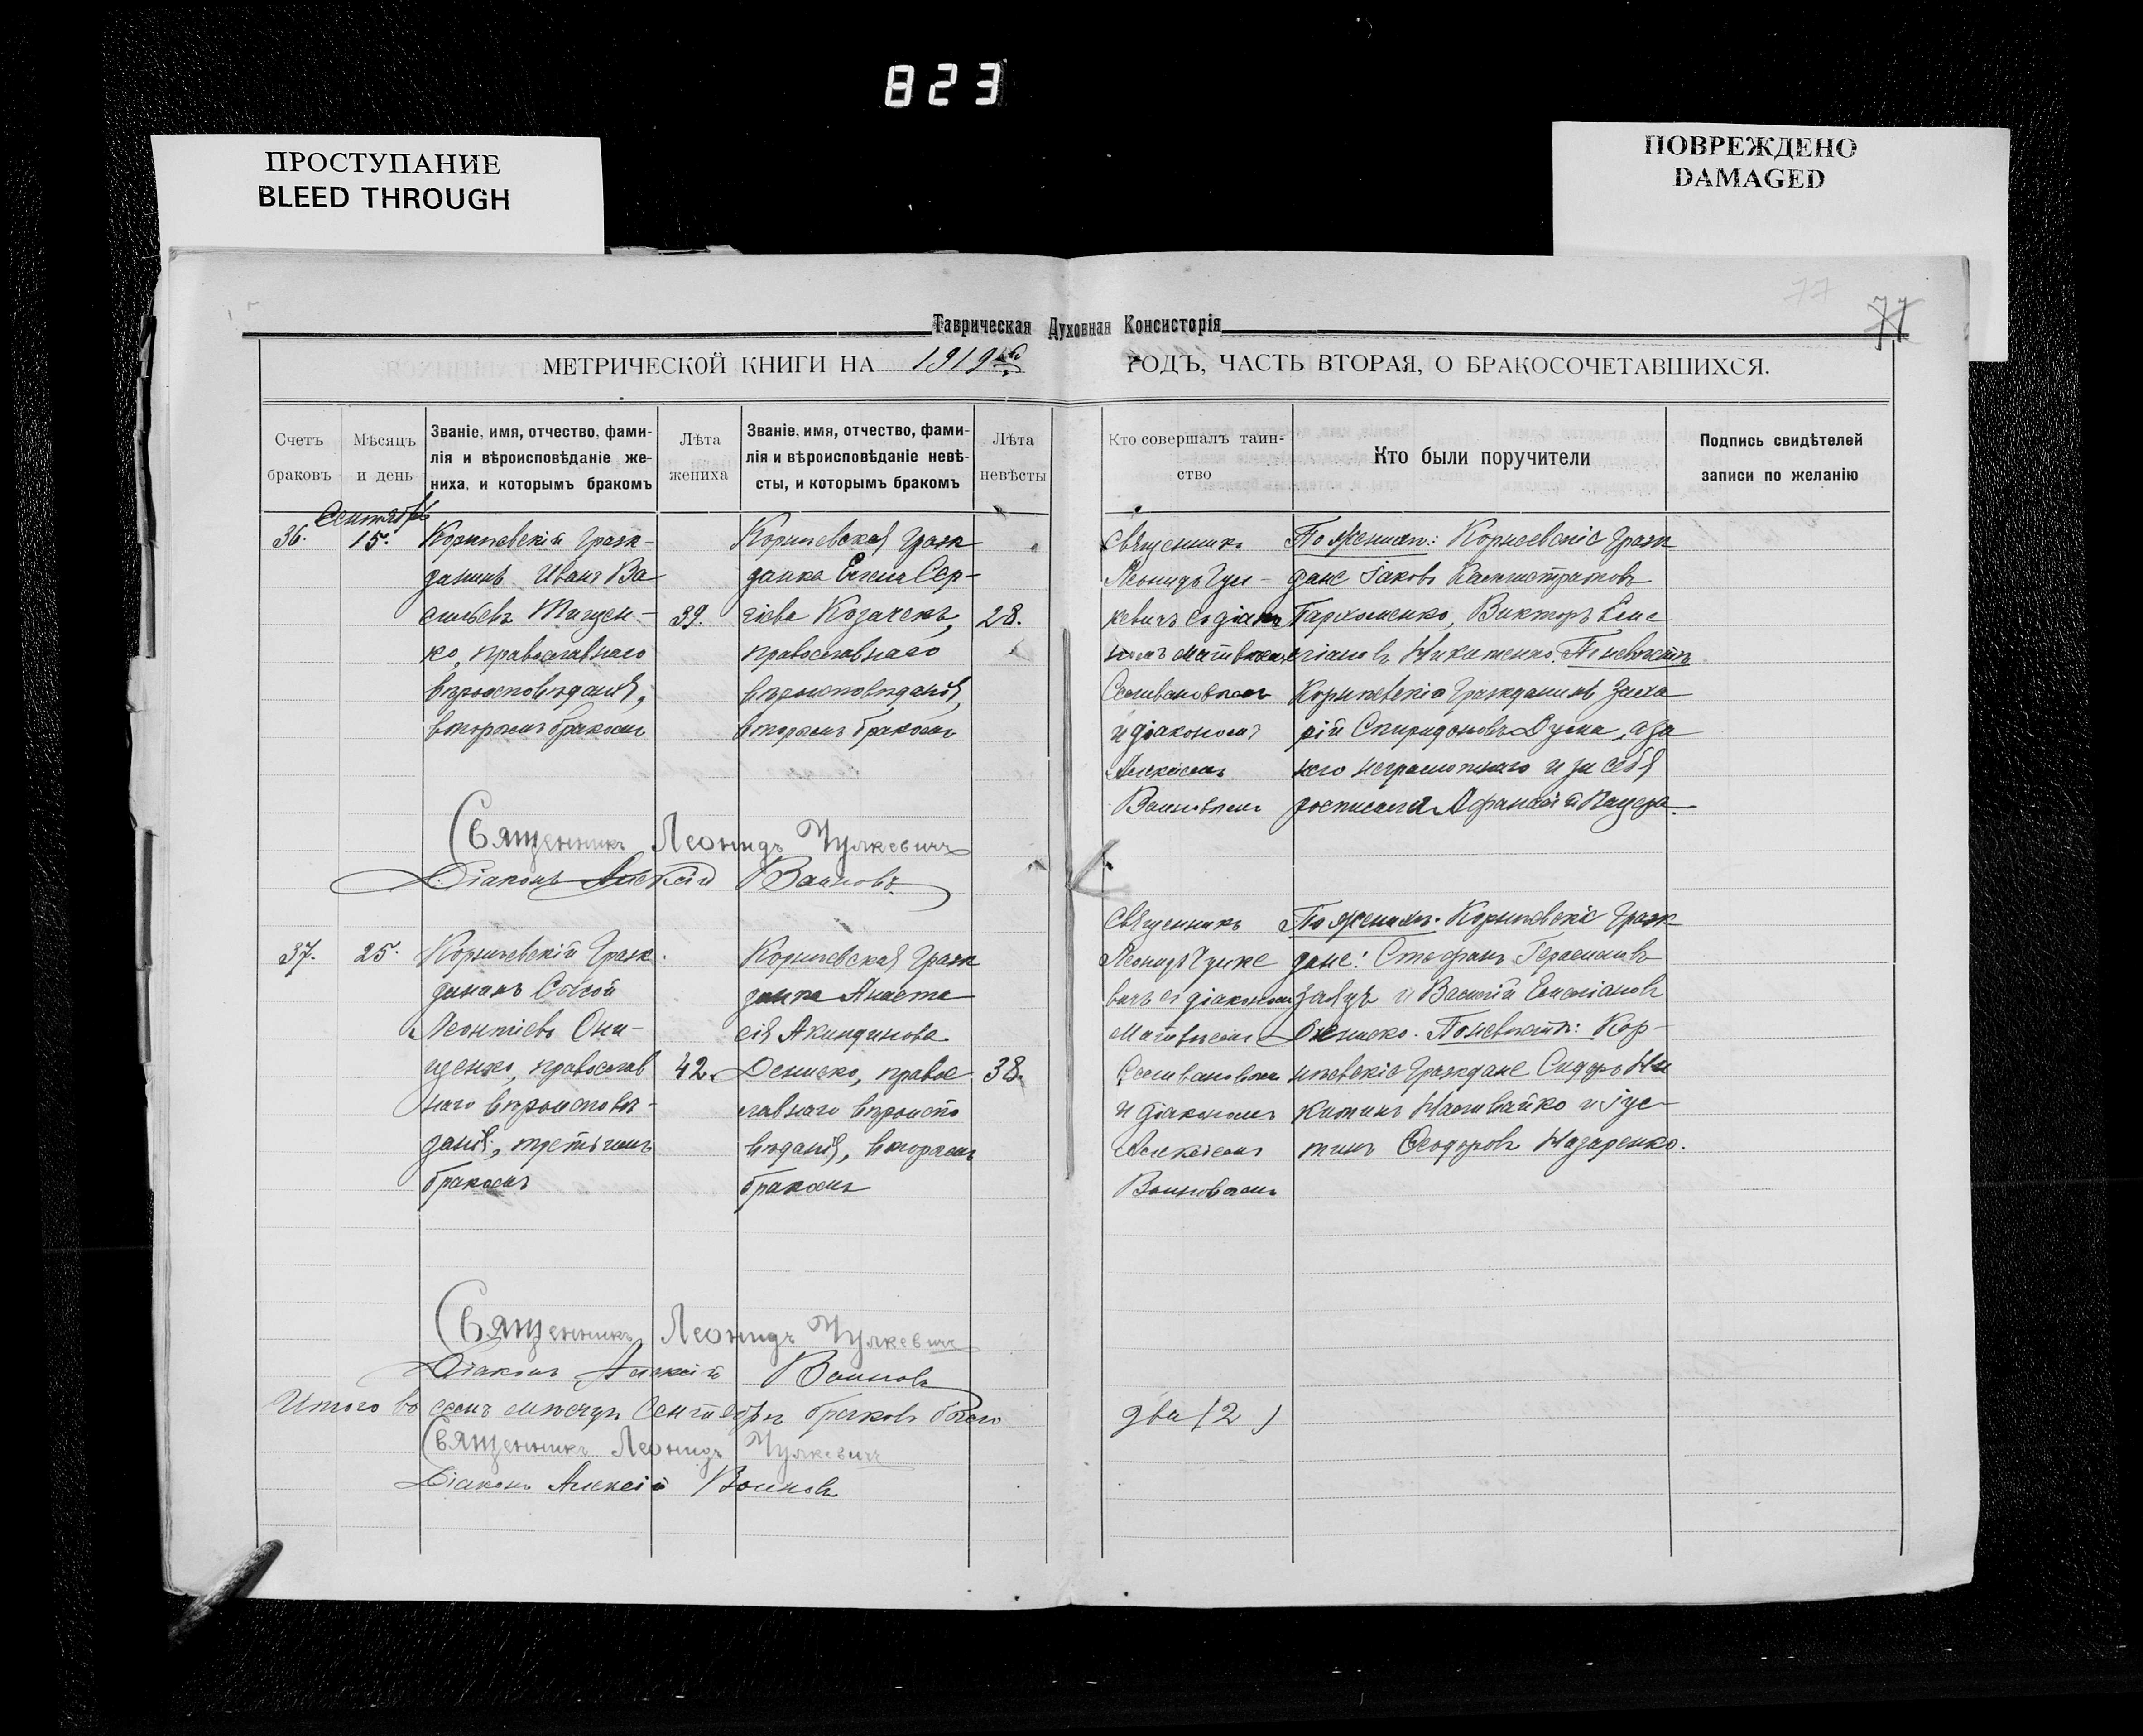 823
ПРОСТУПАНИЕ
BLEED THROUGH
ПОВРЕЖДЕНО
DAMAGED
77
77
Таврическая Духовная Консисторія
МЕТРИЧЕСКОЙ КНИГИ НА 1919 ГОДЪ, ЧАСТЬ ВТОРАЯ, О БРАКОСОЧЕТАВШИХСЯ.
Счетъ
браковъ
Мѣсяцъ
и день
Званіе, имя, отчество, фами-
лія и вѣроисповѣданіе же-
ниха, и которымъ бракомъ
Лѣта
жениха
Званіе, имя, отчество, фами-
лія и вѣроисповѣданіе невѣ-
сты, и которымъ бракомъ
Лѣта
невѣсты
Кто совершалъ таин-
ство
Кто были поручители
Подпись свидѣтелей
записи по желанію
Сентябрь
36.
15.
Граж-
данинъ Иванъ Ва
сильевъ Тищен-
ко, православнаго
вѣроисповѣданія,
вторымъ бракомъ
39.
Граж
данка Елена Сер-
гіева Козачекъ,
православнаго
вѣроисповѣданія,
вторымъ бракомъ
28.
Священникъ
Леонидъ Чул-
кевичъ съ діако
номъ
Селивановымъ
и діакономъ
Алексіемъ
Воиновымъ
По женихѣ: Граж
дане Іаковъ
Пархоменко, Викторъ Еме
ліановъ Никитенко. По невѣстѣ
Гражданинъ Заха
рій Спиридоновъ Дума, а за
него неграмотнаго и за себя
росписался Афанасій
Священникъ Леонидъ Чулкевичъ
Діаконъ Алексій Воиновъ
37.
25.
Граж
данинъ Сысой
Леонтіевъ Они-
щенко, православ
наго вѣроисповѣ-
данія, третьимъ
бракомъ
42.
Граж
данка Анаста
сія Акиндинова
Дениско, правос
лавнаго вѣроиспо
вѣданія, вторымъ
бракомъ
38.
Священникъ
Леонидъ Чулке
вичъ съ діакономъ
Матвіемъ
Селивановымъ
и діакономъ
Алексіемъ
Воиновымъ
По женихѣ: Граж
дане: Стефанъ Герасимовъ
Заяцъ и Василій Емеліановъ
Дениско. По невѣстѣ: Кор-
Граждане Сидоръ Ни
китинъ Наливайко и Іус-
тинъ Ѳеодоровъ Назаренко.
Священникъ Леонидъ Чулкевичъ
Діаконъ Алексій Воиновъ
Итого въ семъ мѣсяцѣ Сентябрѣ браковъ было два (2)
Священникъ Леонидъ Чулкевичъ
Діаконъ Алексій Воиновъ